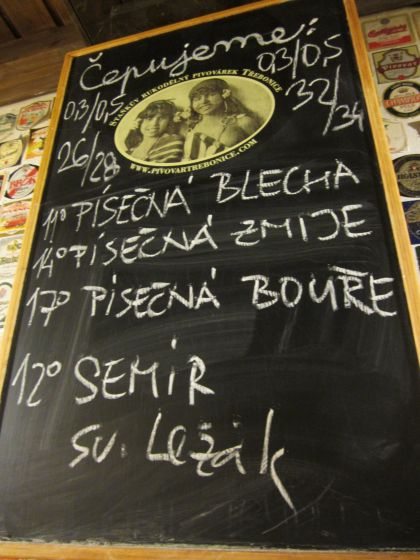 Čepujeme:
0,3/0,5
0,3/0,5
26/28
32/34
STAŇKŮV RUKODĚLNÝ PIVOVÁREK TŘEBONICE
WWW.PIVOVARTREBONICE.COM
11° PÍSEČNÁ BLECHA
14° PÍSEČNÁ ZMIJE
17° PÍSEČNÁ BOUŘE
12° SEMIR
sv. Ležák